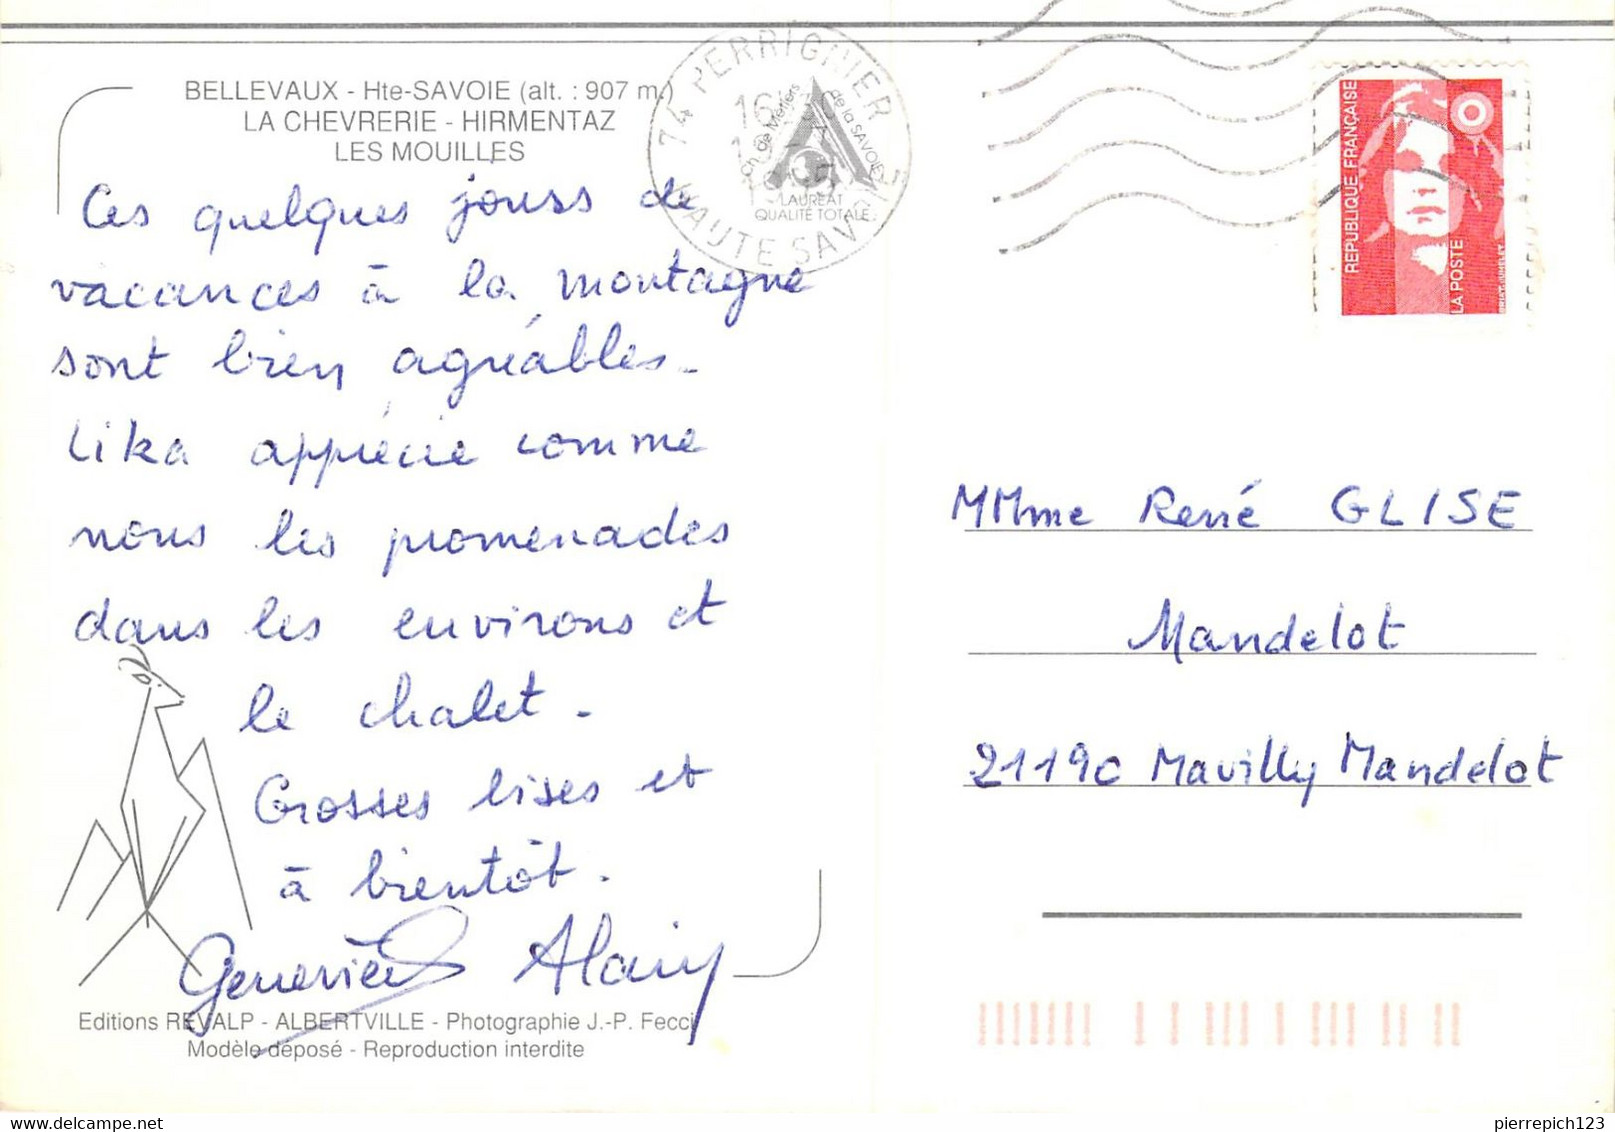 BELLEVAUX - Hte-SAVOIE (alt. : 907 m.)
LA CHEVRERIE - HIRMENTAZ
LES MOUILLES
Ces quelques jours de
vacances à la montagne
sont bien agréables.
Lika apprécie comme
nous les promenades
dans les environs et
le chalet.
Grosses bises et
à bientôt.
Geneviève Alain
Editions REVALP - ALBERTVILLE - Photographie J.-P. Fecci
Modèle déposé - Reproduction interdite
74 PERRIGNIER
HAUTE SAVOIE
Ch. de Métiers
de la SAVOIE
LAURÉAT
QUALITÉ TOTALE
RÉPUBLIQUE FRANÇAISE
LA POSTE
MMme René GLISE
Mandelot
21190 Mavilly Mandelot
pierrepich123